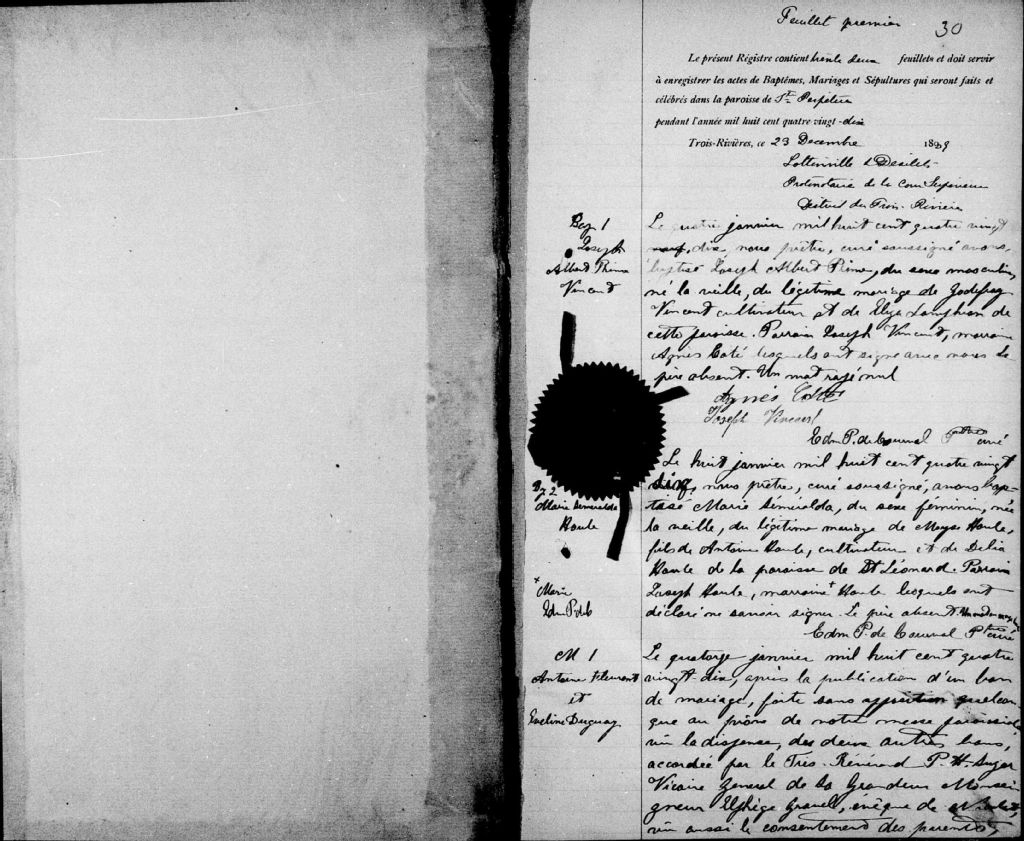 Feuillet premier
30
Le présent Régistre contient trente deux feuillets et doit servir
à enregistrer les actes de Baptêmes, Mariages et Sépultures qui seront faits et
célébrés dans la paroisse de Ste Perpétue
pendant l'année mil huit cent quatre vingt-dix
Trois-Rivières, ce 23 Decembre 1889
Lottinville & Desilets
Protonotaire de la Cour Supérieure
District des Trois-Rivières
Bap 1
Joseph
Albert Prime
Vincent
Le quatre janvier mil huit cent quatre vingt
neuf, dix, nous prêtre, curé soussigné avons,
baptisé Joseph Albert Prime, du sexe masculin,
né la veille, du légitime mariage de Godefroy
Vincent cultivateur et de Elza Lampron de
cette paroisse. Parrain Joseph Vincent, marraine
Agnes Coté lesquels ont signé avec nous le
père absent. Un mot rayé nul
Agnés Coté
Joseph Vincent
Edm P. de Courval Ptre curé
Bp 2
Marie Esméralda
Houle
Le huit janvier mil huit cent quatre vingt
dix, nous prêtre, curé soussigné, avons bap-
tisé Marie Esméralda, du sexe féminin, née
la veille, du légitime mariage de Moyse Houle,
fils de Antoine Houle, cultivateur et de Délia
Houle de la paroisse de St Léonard. Parrain
Joseph Houle, marraine + Houle lesquels ont
déclaré ne savoir signer. Le père absent.
+ Marie
Edm P. de C
Edm P. de Courval Ptre curé
M 1
Antoine Fleurent
et
Eveline Duguay
Le quatorze janvier mil huit cent quatre
vingt-dix, après la publication d'un ban
de mariage, faite sans opposition quelcon
que au prône de notre messe paroissiale
vu la dispense, des deux autres bans,
accordée par le Très-Révérend P. H. Suzor
Vicaire Général de Sa Grandeur Monsei
gneur Elphège Gravel, évêque de Nicolet,
vu aussi le consentement des parents,